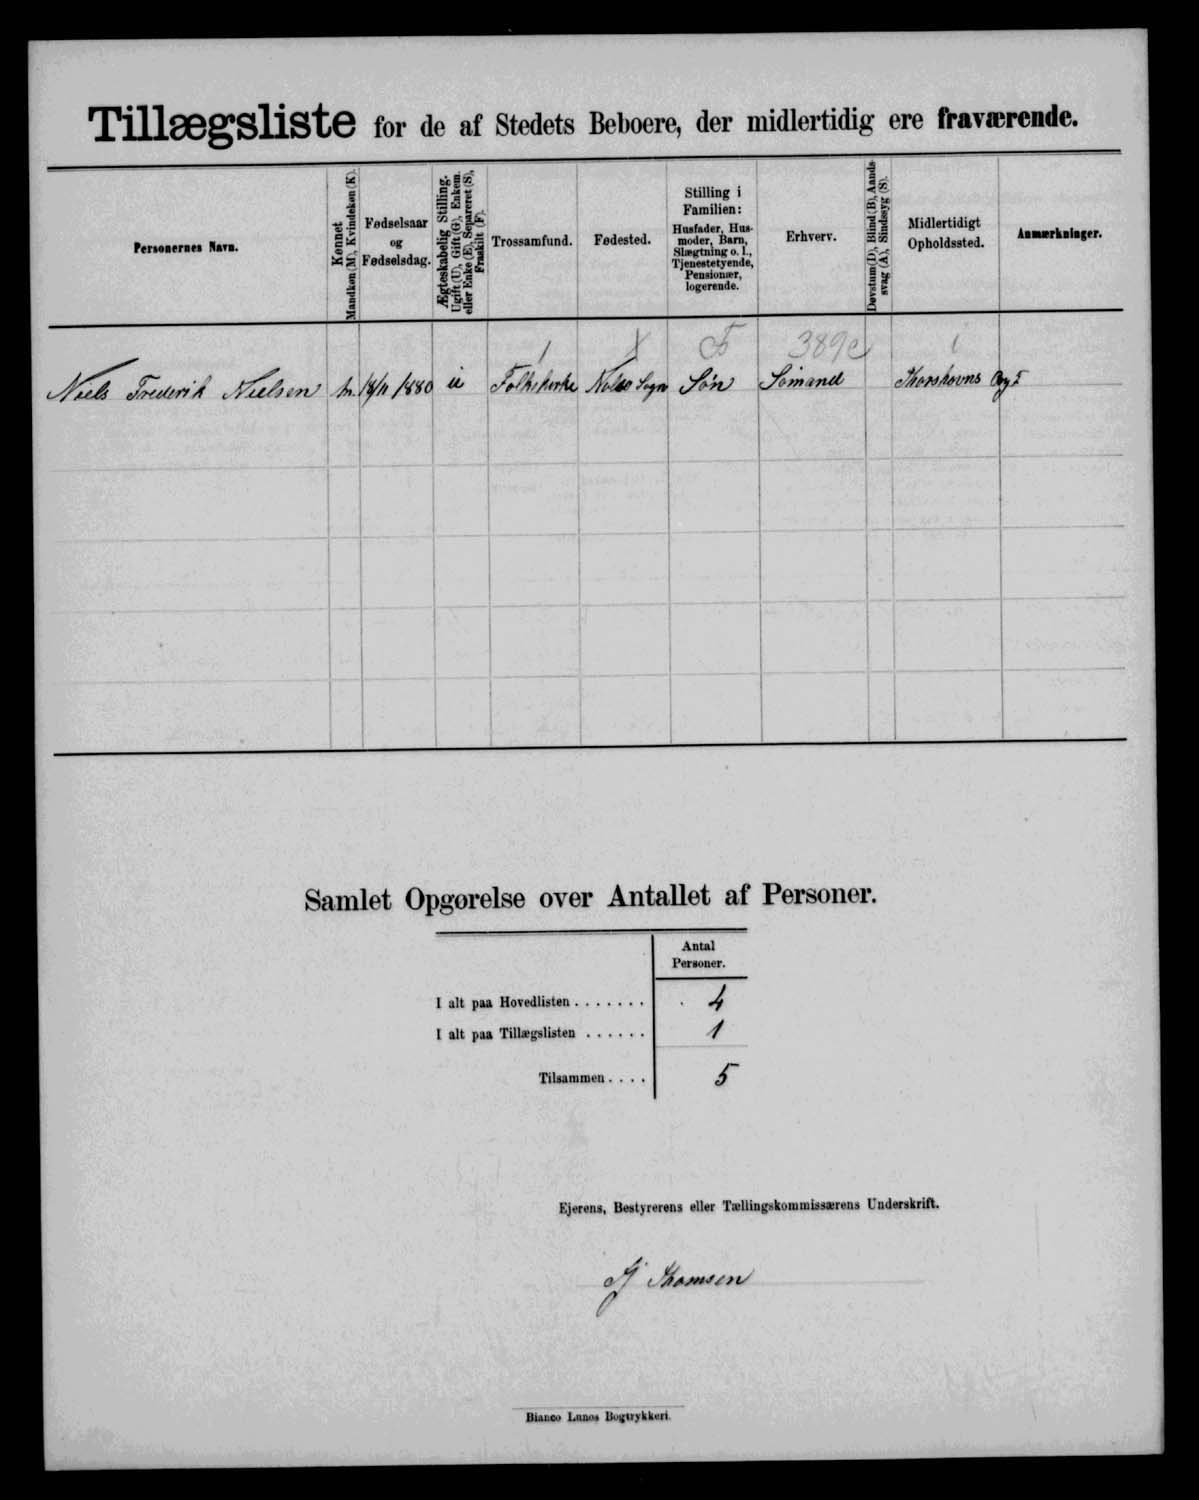 Tillægsliste for de af Stedets Beboere, der midlertidig ere fraværende.
Personernes Navn.
Kønnet
Mandkøn (M), Kvindekøn (K).
Fødselsaar
og
Fødselsdag.
Ægteskabelig Stilling.
Ugift (U), Gift (G), Enkem.
eller Enke (E), Separeret (S),
Fraskilt (F).
Trossamfund.
Fødested.
Stilling i
Familien:
Husfader, Hus-
moder, Barn,
Slægtning o. l.,
Tjenestetyende,
Pensionær,
logerende.
Erhverv.
Døvstum (D), Blind (B), Aands-
svag (A), Sindssyg (S).
Midlertidigt
Opholdssted.
Anmærkninger.
Niels Frederik Nielsen m. 18/11 1880 u Folkekirke Nolsø Sogn Søn Sømand Thorshavns
Samlet Opgørelse over Antallet af Personer.
Antal
Personer.
I alt paa Hovedlisten . . . . . . . 4
I alt paa Tillægslisten . . . . . . 1
Tilsammen . . . . 5
Ejerens, Bestyrerens eller Tællingskommissærens Underskrift.
Thomsen
Bianco Lunos Bogtrykkeri.